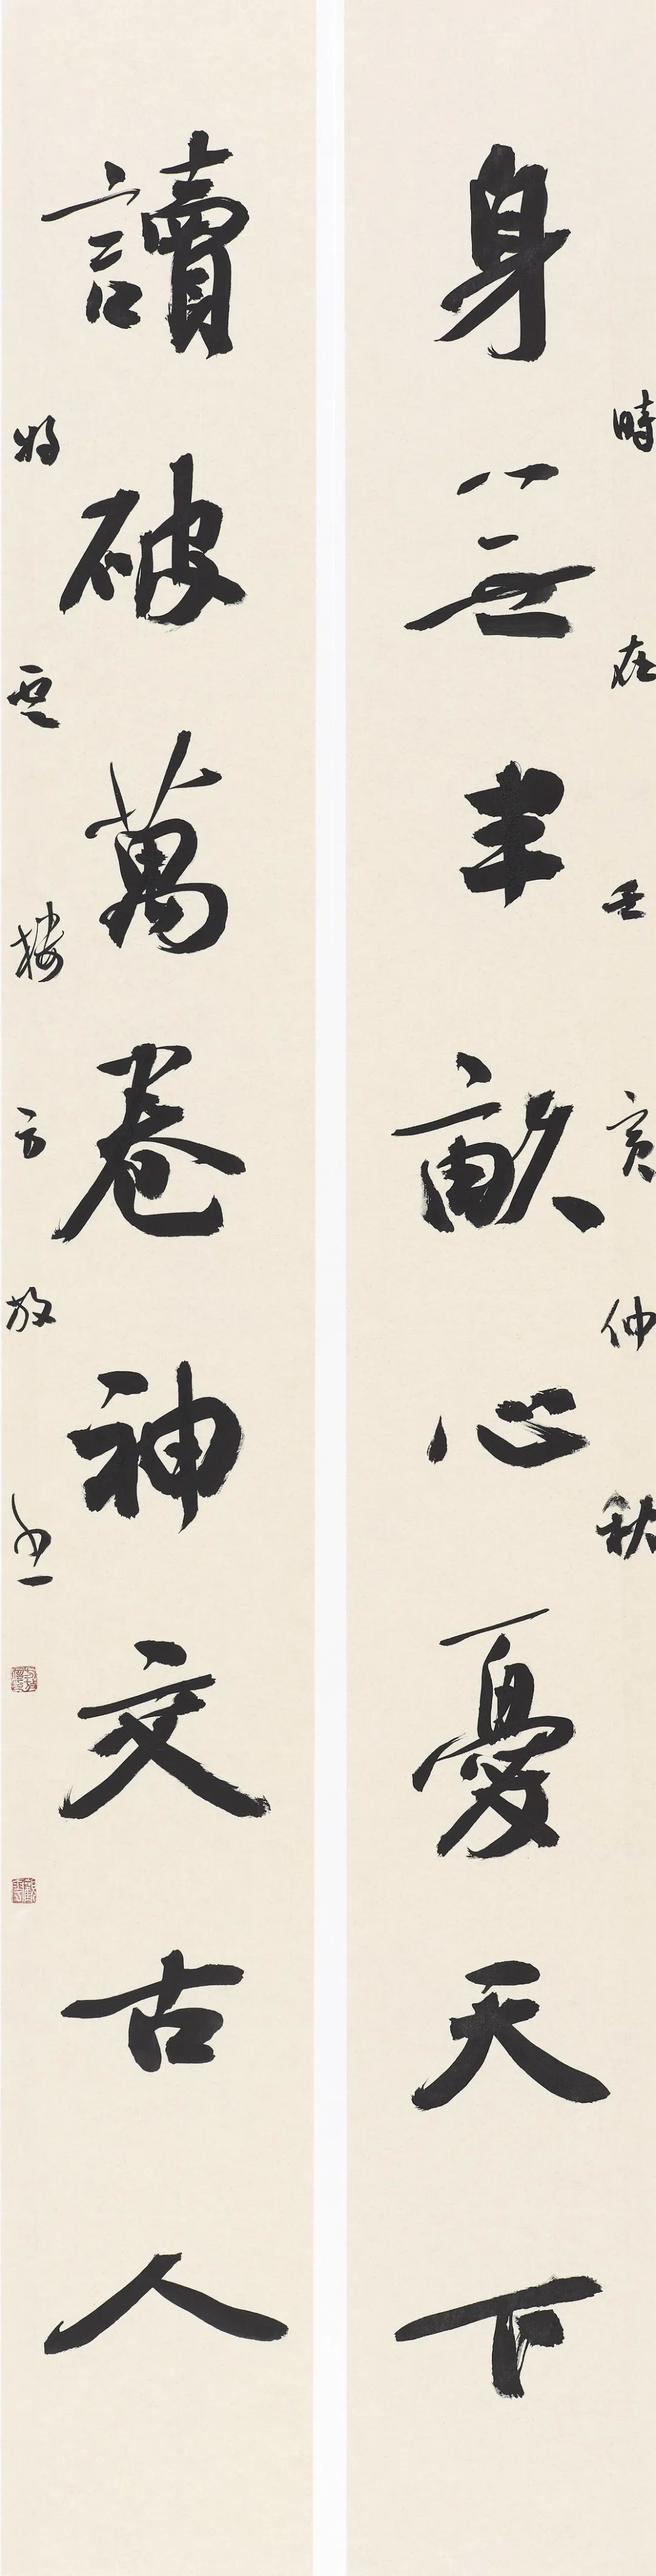 時在壬寅仲秋
身無半畝心憂天下
讀破萬卷神交古人
樓方放书